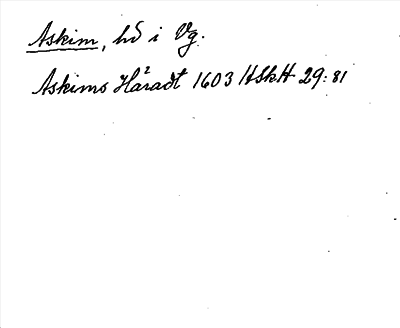 Askim, hd i Vg.
Askims Håradt 1603 HSkH 29:81